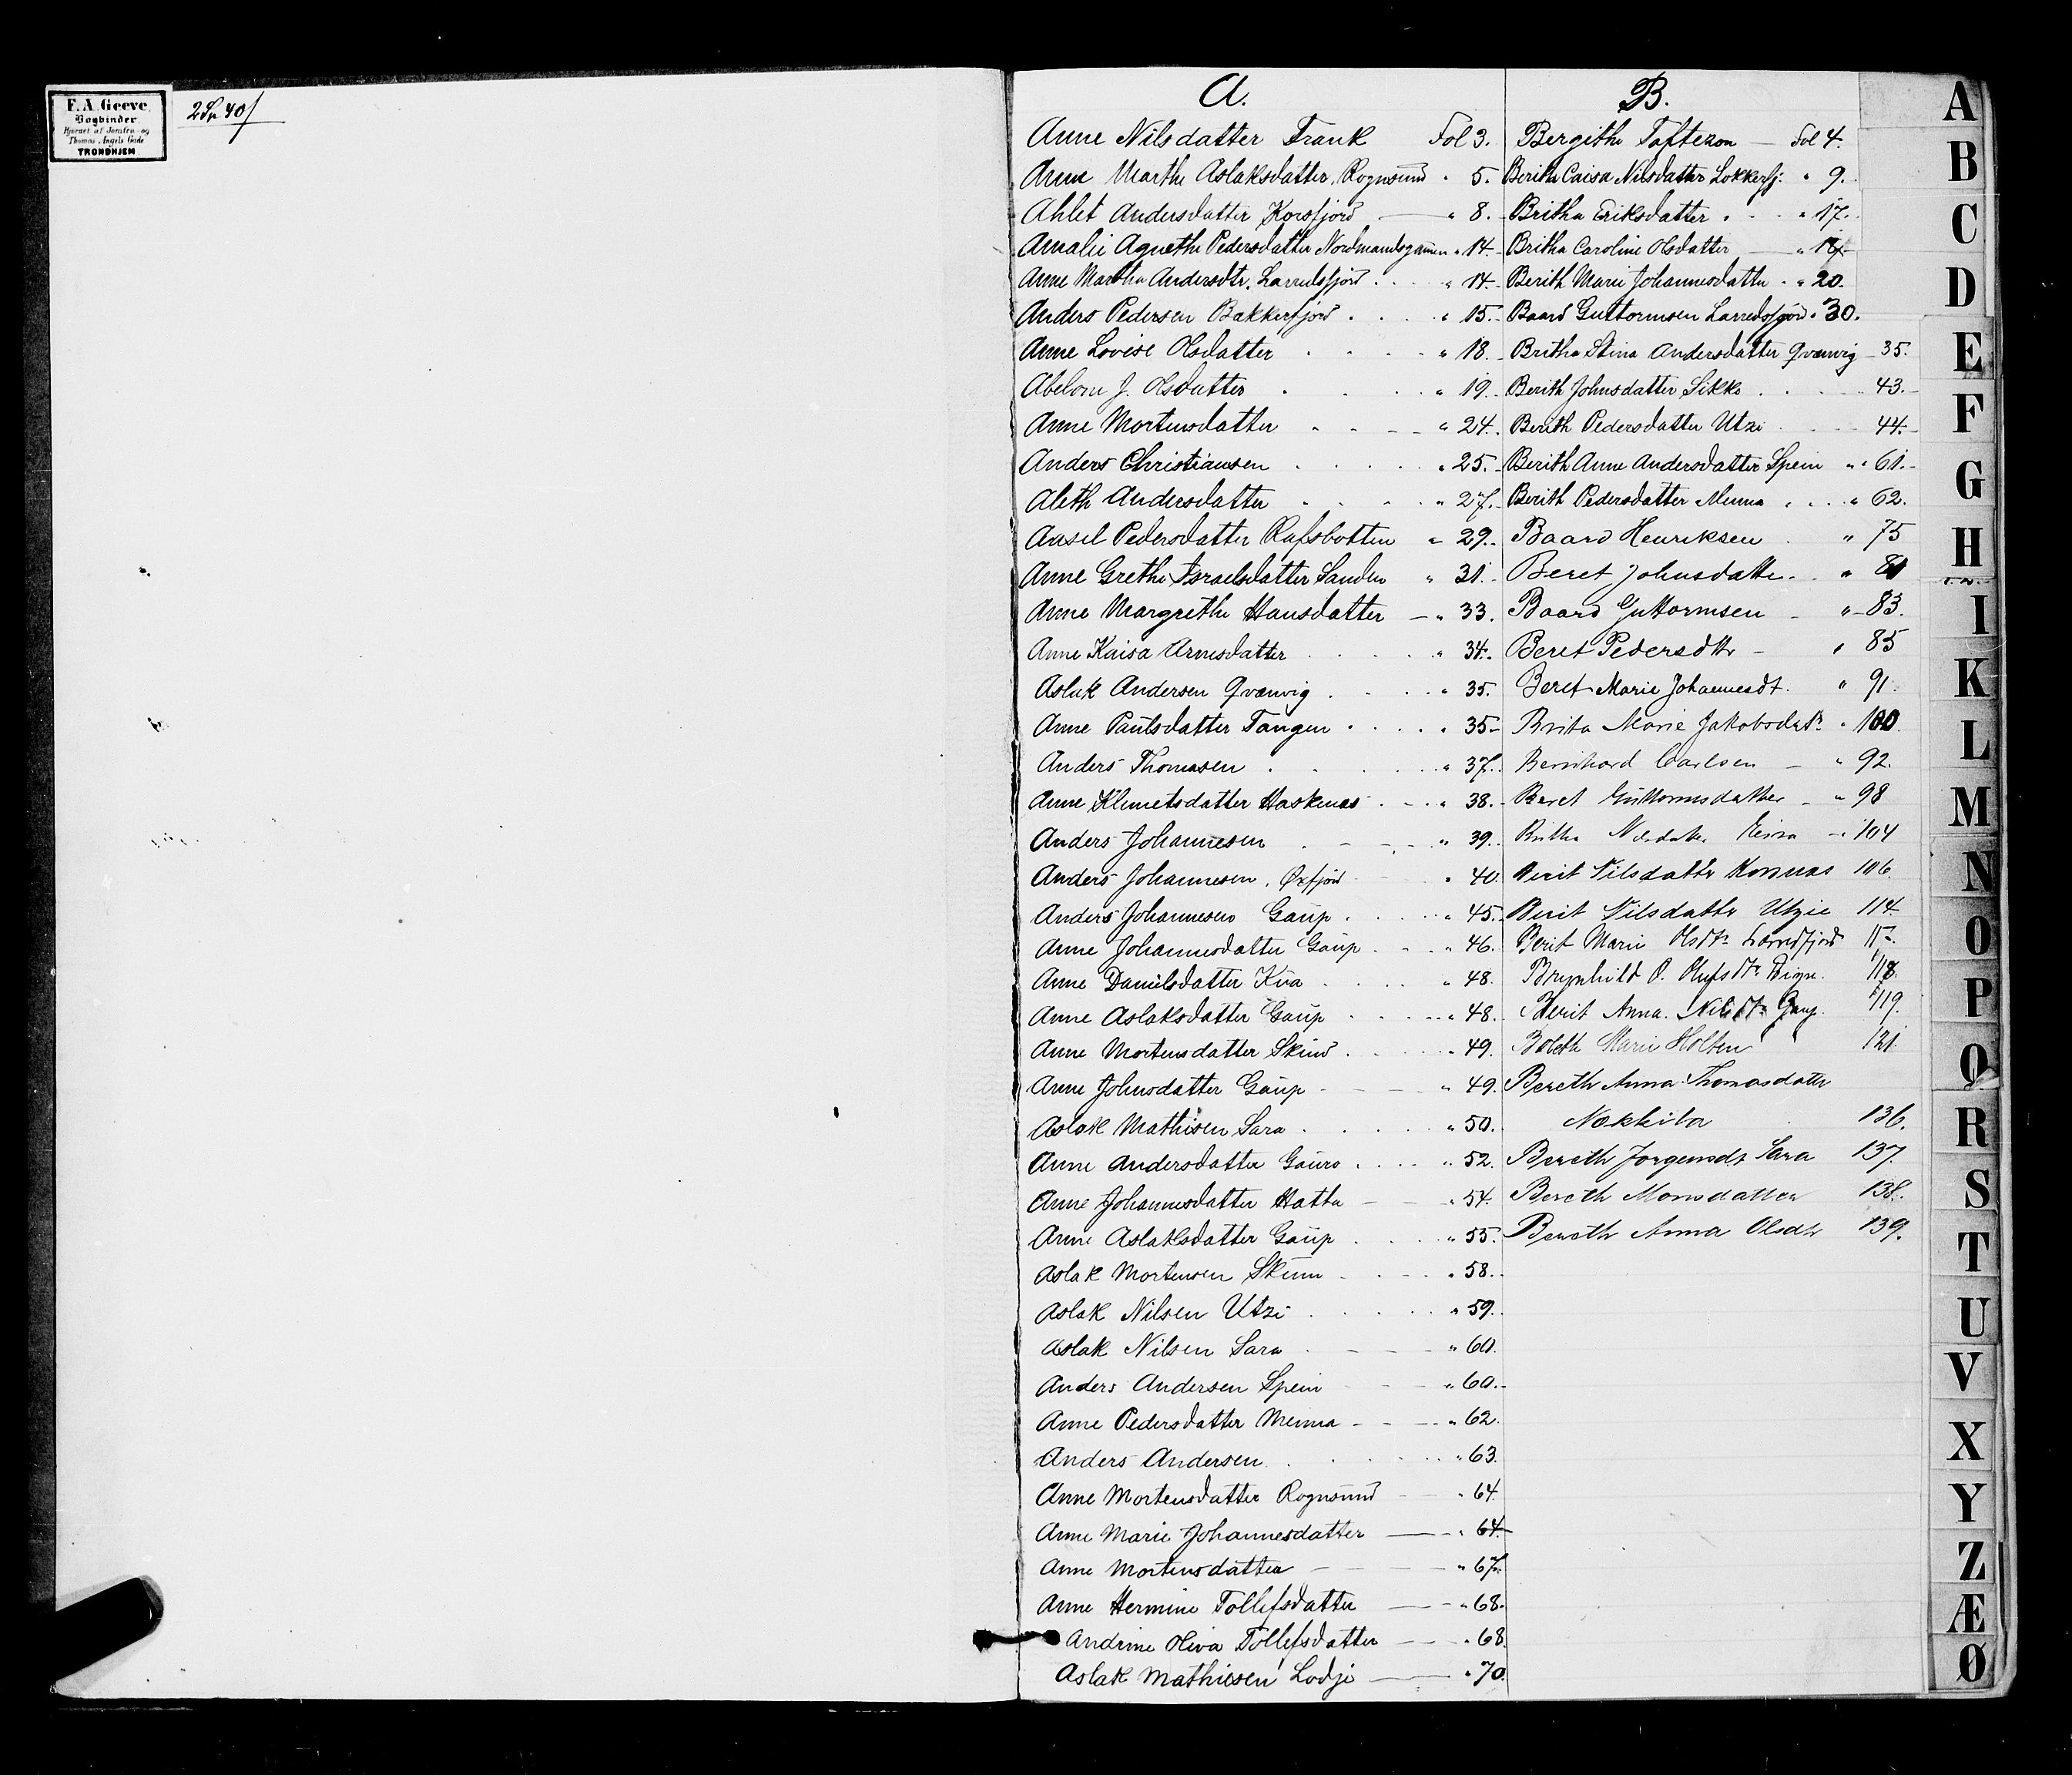 F. A. Geeve,
Bogbinder
Hjørnet af Jomfru- og
Thomas Angels Gade
TRONDHJEM
2 Kr 40/
A.
Anne Nilsdatter Frank Fol 3.
Anne Marthe Aslaksdatter, Rognsund " 5.
Ahlet Andersdatter Korsfjord " 8.
Amalie Agnethe Pedersdatter Nordmandsgamen " 14.
Anne Martha Andersdtr. Larredsfjord " 14.
Anders Pedersen Bakkerfjord " 15.
Anne Lovise Olsdatter " 18.
Abelone J. Olsdatter " 19.
Anne Mortensdatter " 24.
Anders Christiansen " 25.
Aleth Andersdatter " 27.
Aasel Pedersdatter Rafsbotten " 29.
Anne Grethe Israelsdatter Sanden " 31.
Anne Margrethe Hansdatter " 33.
Anne Kaisa Arnesdatter " 34.
Aslak Andersen Qvænvig " 35.
Anne Paulsdatter Tangen " 35
Anders Thomasen " 37.
Anne Klemetsdatter Haskenæs " 38.
Anders Johannesen " 39.
Anders Johannesen, Øxfjord " 40
Anders Johannesen Gaup " 45.
Anne Johannesdatter Gaup " 46.
Anne Danielsdatter Kua " 48.
Anne Aslaksdatter Gaup " 48.
Anne Mortensdatter Skum " 49.
Anne Johnsdatter Gaup " 49.
Aslak Mathisen Sara " 50.
Anne Andersdatter Gauro " 52.
Anne Johannesdatter Hatta " 54.
Anne Aslaksdatter Gaup " 55.
Aslak Mortensen Skum " 58.
Aslak Nilsen Utzi " 59.
Aslak Nilsen Sara " 60.
Anders Andersen Spein " 60.
Anne Pedersdatter Menna " 62.
Anders Andersen " 63.
Anne Mortensdatter Rognsund " 64.
Anne Marie Johannesdatter " 64.
Anne Mortensdatter " 67.
Anne Hermine Tollefsdatter " 68.
Andrine Oliva Tollefsdatter " 68.
Aslak Mathiesen Lodje " 70.
B.
Bergithe Taftezon Fol 4.
Beritha Caisa Nilsdatter Lokkerfj: " 9.
Britha Eriksdatter " 17.
Britha Caroline Olsdatter
Berith Marie Johannesdatter " 20.
Baard Guttormsen Larredsfjord " 30.
Britha Stina Andersdatter Qvænvig 35.
Berith Johnsdatter Sikko 43.
Berith Pedersdatter Utzi 44.
Berith Anne Andersdatter Spein " 61.
Berith Pedersdatter Menna " 62.
Baard Henriksen " 75
Beret Johnsdatter "
Baard Guttormsen " 83.
Beret Pedersdtr " 85
Beret Marie Johannesdt. " 91.
Brita Marie Jakobsdatr " 100
Bernhard Carlsen " 92.
Beret Guttormsdatter " 98
Britha Nilsdatter Eira " 104
Berit Nilsdattr Kornnæs 106.
Berit Nilsdattr Utzie 114
Berit Marie Olsdtr Larredfjord
Brynhild O. Olufsdtr 118.
Berit Anna Nilsdtr Gaup. 119.
Boleth Marie Holten 121.
Bereth Anna Thomasdatter
Nækkila 136.
Bereth Jørgensdt Sara 137.
Bereth Monsdatter 138.
Bereth Anna Olsdtr 139.
A
B
C
D
E
F
G
H
I
K
L
M
N
O
P
Q
R
S
T
U
V
X
Y
Z
Æ
Ø